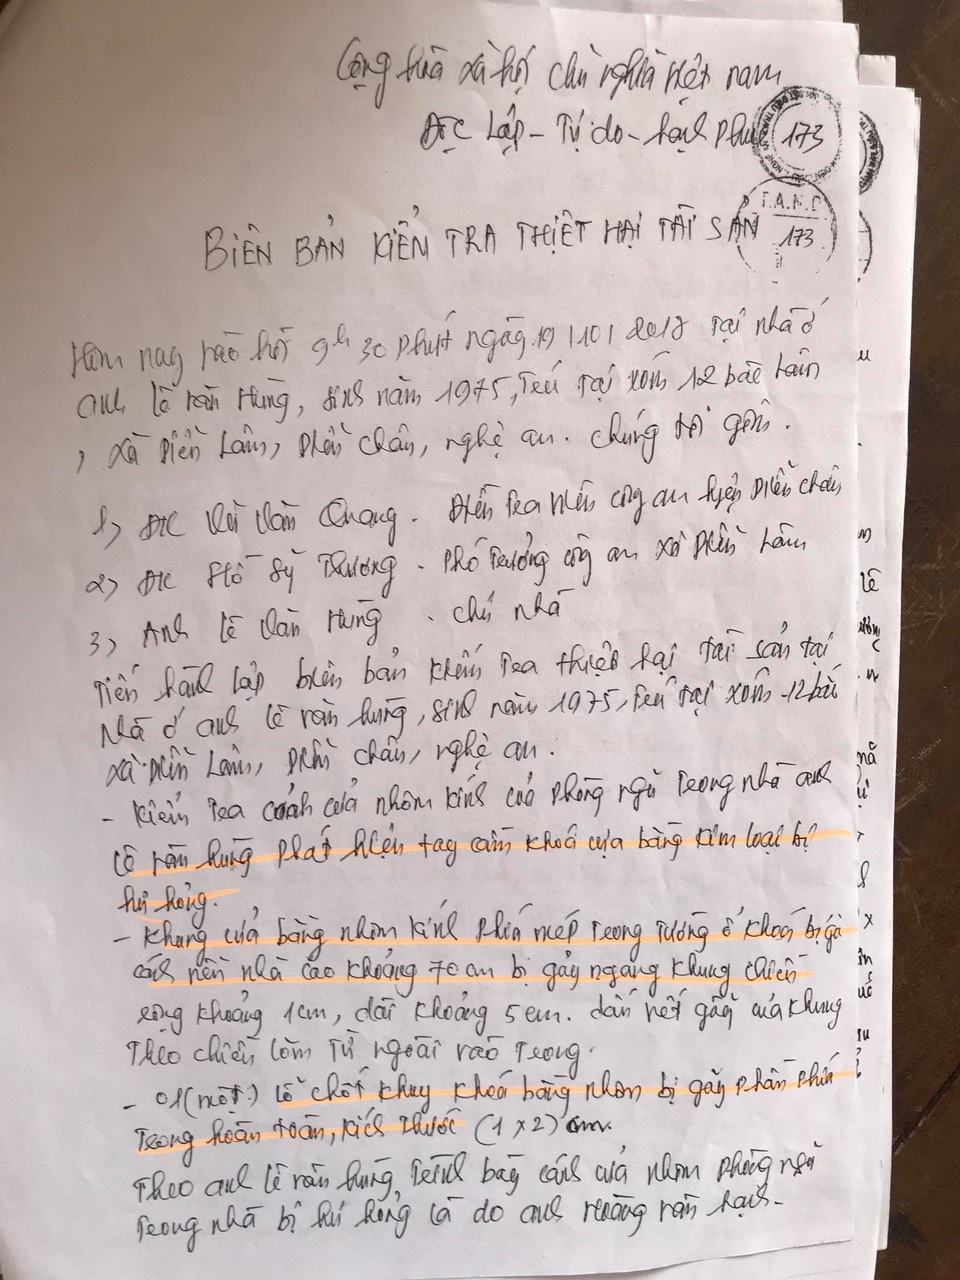 Cộng hòa xã hội chủ nghĩa việt nam
Độc lập - Tự do - hạnh phúc
173
T.A.N.D
173
BIÊN BẢN KIỂN TRA THIỆT HẠI TÀI SẢN
Hôm nay vào hồi 9h 30 phút ngày 19/10/2018 tại nhà ở
anh lê văn Hùng, sinh năm 1975, trú tại xóm 12
, xã Diễn Lâm, Diễn Châu, nghệ an. chúng tôi gồm.
1, Đ/c Văn Quang. Điều tra viên công an huyện Diễn châu
2, Đ/c Hồ Sỹ Thương. Phó trưởng công an xã Diễn Lâm
3, Anh Lê Văn Hùng. chủ nhà
Tiến hành lập biên bản kiểm tra thiệt hại tài sản tại
Nhà ở anh lê văn hùng, sinh năm 1975, trú tại xóm 12
xã Diễn Lâm, Diễn châu, nghệ an.
- Kiểm tra cánh cửa nhôm kính của phòng ngủ trong nhà anh
lê văn hùng phát hiện tay cầm khoá cửa bằng kim loại bị
hư hỏng.
- Khung cửa bằng nhôm kính phía mép trong tường ổ khoá bị gãy
cách nền nhà cao khoảng 70 cm bị gãy ngang khung chiều
rộng khoảng 1cm, dài khoảng 5 cm. dấu vết gãy của khung
theo chiều lõm từ ngoài vào trong.
- 01 (một) lỗ chốt khuy khoá bằng nhôm bị gãy phần phía
trong hoàn toàn, kích thước (1 x 2) cm.
Theo anh lê văn hùng trình bày cánh cửa nhôm phòng ngủ
trong nhà bị hư hỏng là do anh văn hạnh-